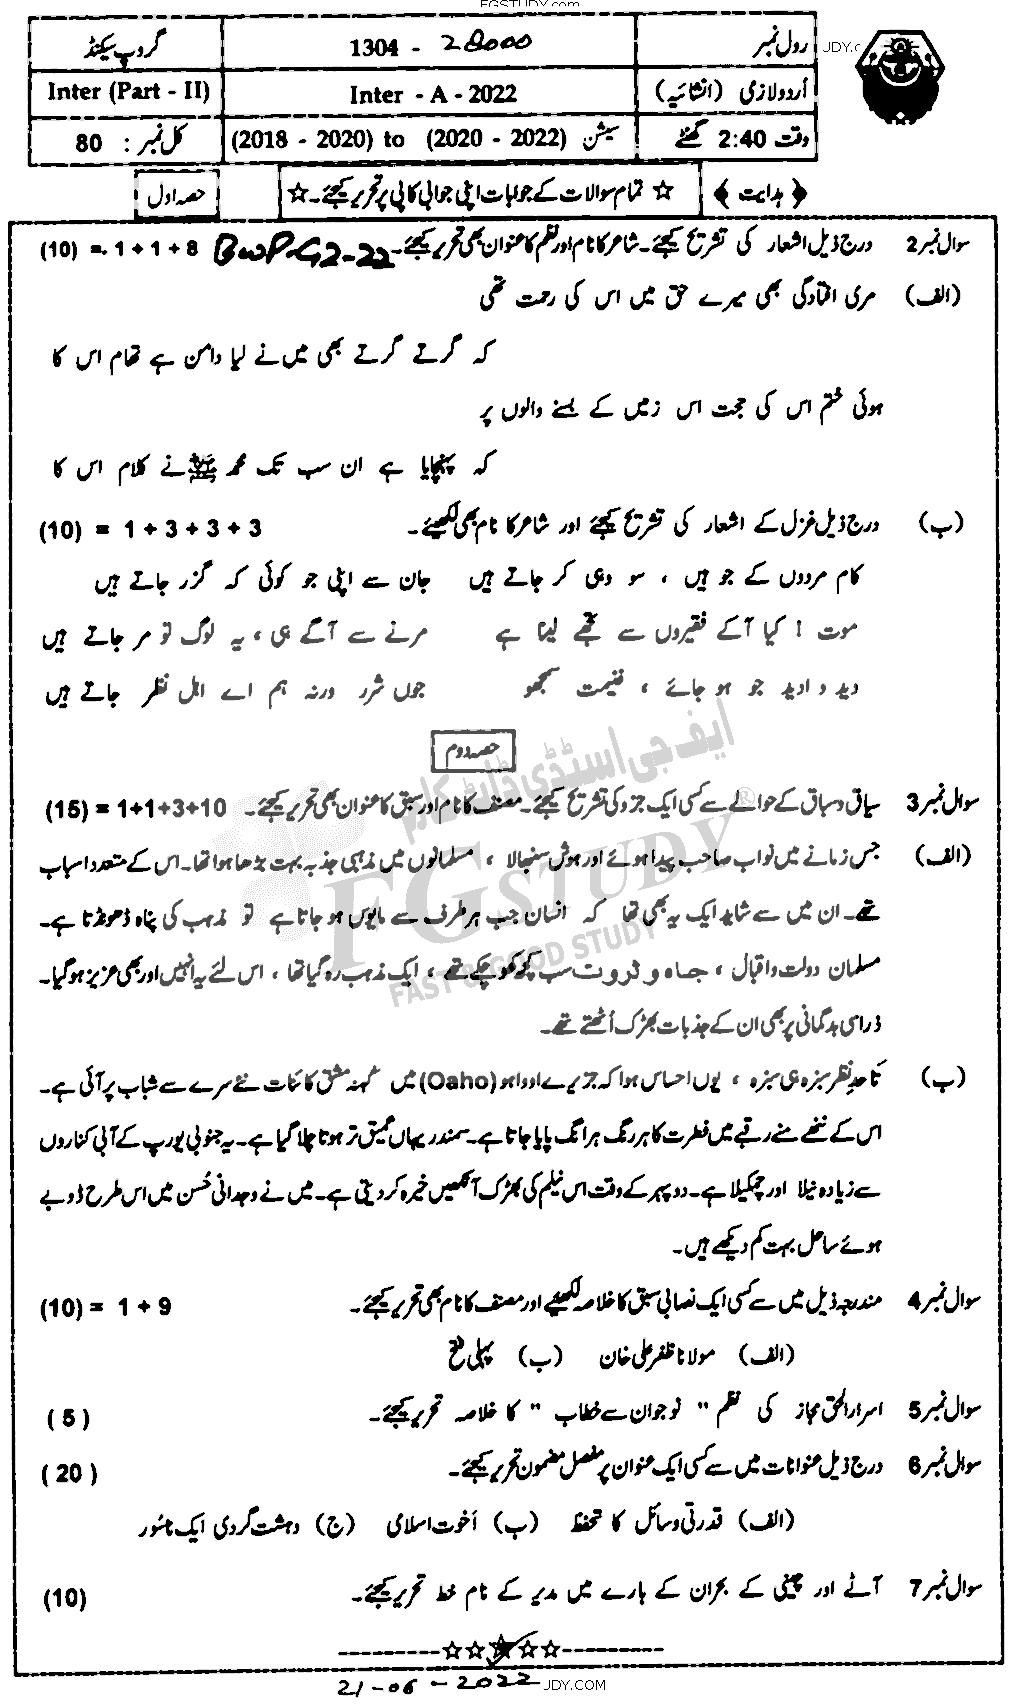 FGSTUDY.com
رول نمبر 1304 - 28000 گروپ سیکنڈ
JDY.c
اُردو لازمی (انشائیہ) Inter - A - 2022 Inter (Part - II)
وقت 2:40 گھنٹے سیشن (2018 - 2020) to (2020 - 2022) کل نمبر : 80
﴿ ہدایت ﴾ ☆ تمام سوالات کے جوابات اپنی جوابی کاپی پر تحریر کیجئے۔ ☆ حصہ اول
سوال نمبر 2 درج ذیل اشعار کی تشریح کیجئے۔ شاعر کا نام اور نظم کا عنوان بھی تحریر کیجئے۔ BWP-G2-22 (10) = 1 + 1 + 8
(الف) مری افتادگی بھی میرے حق میں اس کی رحمت تھی
کہ گرتے گرتے بھی میں نے لیا دامن ہے تھام اس کا
ہوئی ختم اس کی حجت اس زمیں کے بسنے والوں پر
کہ پہنچایا ہے ان سب تک محمد ﷺ نے کلام اس کا
(ب) درج ذیل غزل کے اشعار کی تشریح کیجئے اور شاعر کا نام بھی لکھیئے۔ (10) = 1 + 3 + 3 + 3
کام مردوں کے جو ہیں ، سو وہی کر جاتے ہیں جان سے اپنی جو کوئی کہ گزر جاتے ہیں
موت ! کیا آکے فقیروں سے تجھے لینا ہے مرنے سے آگے ہی ، یہ لوگ تو مر جاتے ہیں
دید و ادید جو ہو جائے ، غنیمت سمجھو جوں شرر ورنہ ہم اے اہل نظر جاتے ہیں
حصہ دوم
سوال نمبر 3 سیاق و سباق کے حوالے سے کسی ایک جزو کی تشریح کیجئے۔ مصنف کا نام اور سبق کا عنوان بھی تحریر کیجئے۔ (15) = 1+1+3+10
(الف) جس زمانے میں نواب صاحب پیدا ہوئے اور ہوش سنبھالا ، مسلمانوں میں مذہبی جذبہ بہت بڑھا ہوا تھا۔ اس کے متعدد اسباب
تھے۔ ان میں سے شاید ایک یہ بھی تھا کہ انسان جب ہر طرف سے مایوس ہو جاتا ہے تو مذہب کی پناہ ڈھونڈتا ہے۔
مسلمان دولت و اقبال ، جاہ و ثروت سب کچھ کھو چکے تھے ، ایک مذہب رہ گیا تھا ، اس لئے یہ انہیں اور بھی عزیز ہو گیا۔
ذرا سی بدگمانی پر بھی ان کے جذبات بھڑک اُٹھتے تھے۔
(ب) تا حدِ نظر سبزہ ہی سبزہ ، یوں احساس ہوا کہ جزیرے اوواہو (Oaho) میں کہنہ مشق کائنات نئے سرے سے شباب پر آئی ہے۔
اس کے ننھے منے رقبے میں فطرت کا ہر رنگ ہر انگ پایا جاتا ہے۔ سمندر یہاں عمیق تر ہوتا چلا گیا ہے۔ یہ جنوبی یورپ کے آبی کناروں
سے زیادہ نیلا اور چمکیلا ہے۔ دوپہر کے وقت اس نیلم کی بھڑک آنکھیں خیرہ کر دیتی ہے۔ میں نے وجدانی حُسن میں اس طرح ڈوبے
ہوئے ساحل بہت کم دیکھے ہیں۔
سوال نمبر 4 مندرجہ ذیل میں سے کسی ایک نصابی سبق کا خلاصہ لکھیئے اور مصنف کا نام بھی تحریر کیجئے۔ (10) = 1 + 9
(الف) مولانا ظفر علی خان (ب) پہلی فتح
سوال نمبر 5 اسرار الحق مجاز کی نظم " نوجوان سے خطاب " کا خلاصہ تحریر کیجئے۔ (5)
سوال نمبر 6 درج ذیل عنوانات میں سے کسی ایک عنوان پر مفصل مضمون تحریر کیجئے۔ (20)
(الف) قدرتی وسائل کا تحفظ (ب) اُخوت اسلامی (ج) دہشت گردی ایک ناسُور
سوال نمبر 7 آٹے اور چینی کے بحران کے بارے میں مدیر کے نام خط تحریر کیجئے۔ (10)
ایف جی اسٹڈی ڈاٹ کام
FGSTUDY®
FAST & GOOD STUDY
---------☆☆★☆☆---------
21-06-2022 JDY.COM